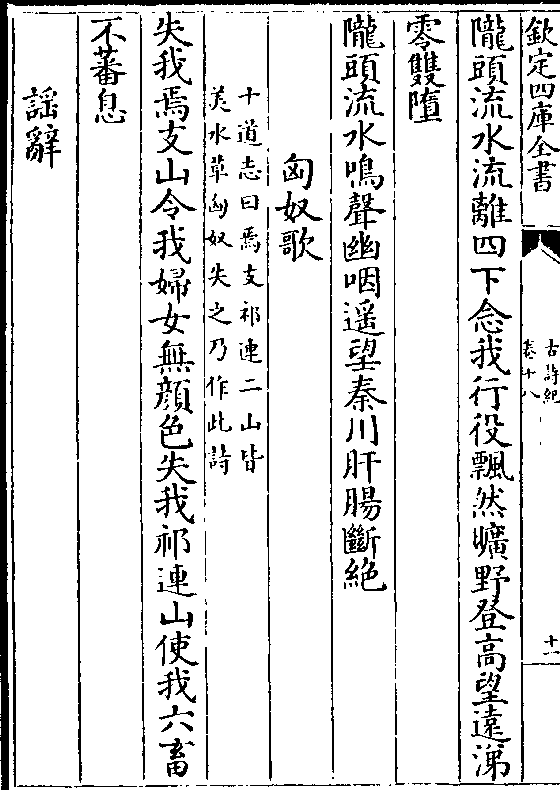 欽定四庫全書
古詩紀
卷十八
十一
隴頭流水流離四下念我行役飄然曠野登高望遠涕
零雙墮
隴頭流水鳴聲幽咽遥望秦川肝腸斷絶
匈奴歌
十道志曰焉支祁連二山皆
美水草匈奴失之乃作此詩
失我焉支山令我婦女無顔色失我祁連山使我六畜
不蕃息
謡辭